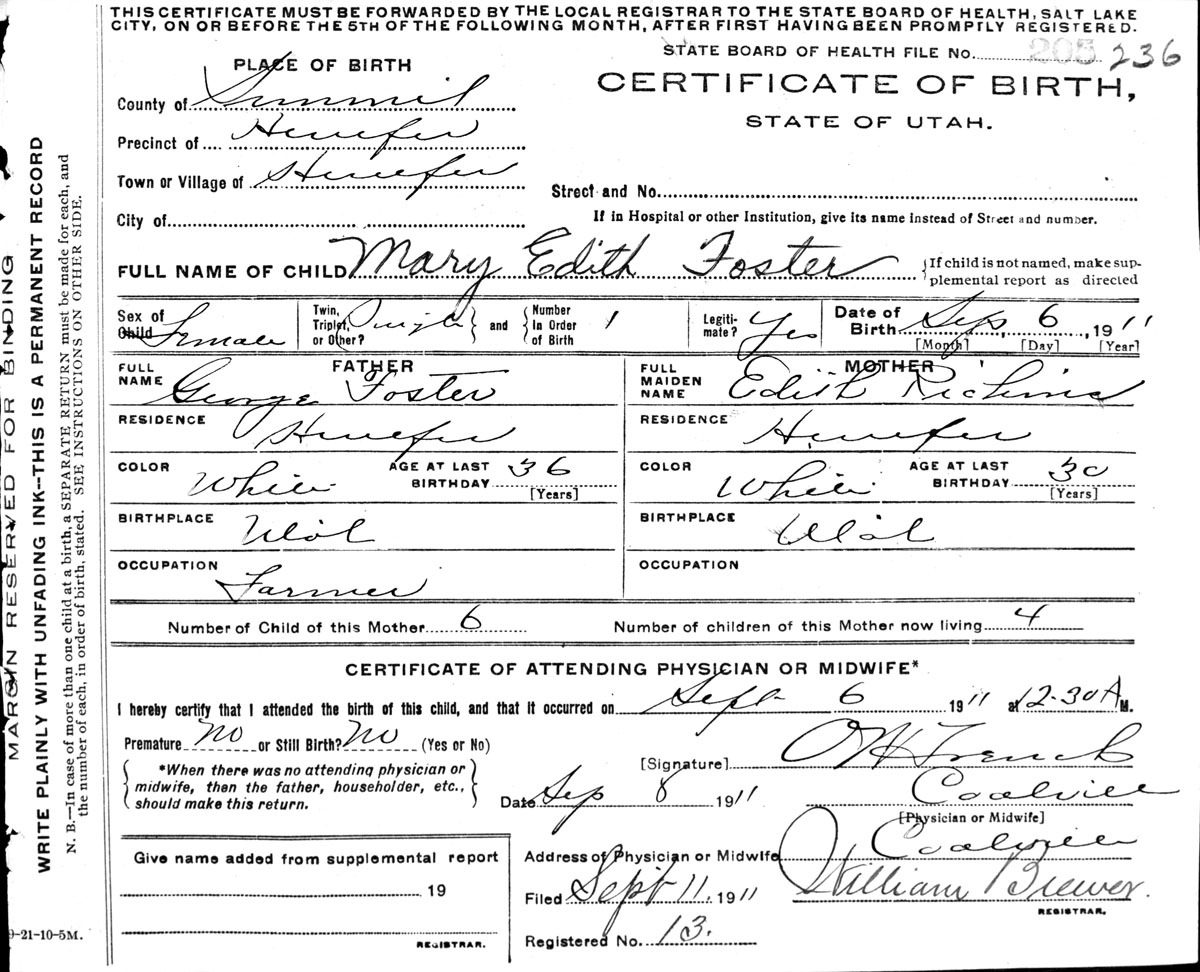 THIS CERTIFICATE MUST BE FORWARDED BY THE LOCAL REGISTRAR TO THE STATE BOARD OF HEALTH, SALT LAKE
CITY, ON OR BEFORE THE 5TH OF THE FOLLOWING MONTH, AFTER FIRST HAVING BEEN PROMPTLY REGISTERED.
STATE BOARD OF HEALTH FILE No. 205 236
PLACE OF BIRTH
CERTIFICATE OF BIRTH,
STATE OF UTAH.
County of Summit
Precinct of Henefer
Town or Village of Henefer
Street and No.
City of
If in Hospital or other Institution, give its name instead of Street and number.
FULL NAME OF CHILD Mary Edith Foster {If child is not named, make sup-
plemental report as directed
Sex of Child Female
Twin, Triplet, or Other? Single and Number In Order of Birth 1
Legiti-mate? Yes
Date of Birth Sep 6, 1911
[Month] [Day] [Year]
FATHER
FULL NAME George Foster
MOTHER
FULL MAIDEN NAME Edith Richins
RESIDENCE Henefer
RESIDENCE Henefer
COLOR White AGE AT LAST BIRTHDAY 36 [Years]
COLOR White AGE AT LAST BIRTHDAY 30 [Years]
BIRTHPLACE Utah
BIRTHPLACE Utah
OCCUPATION Farmer
OCCUPATION
Number of Child of this Mother 6 Number of children of this Mother now living 4
CERTIFICATE OF ATTENDING PHYSICIAN OR MIDWIFE*
I hereby certify that I attended the birth of this child, and that it occurred on Sept 6 1911 at 12-30 A M.
Premature No or Still Birth? No (Yes or No)
[Signature] O W French
*When there was no attending physician or
midwife, then the father, householder, etc.,
should make this return.
Date Sep 8 1911 Coalville
[Physician or Midwife]
Address of Physician or Midwife Coalville
Filed Sept 11, 1911 William Brewer.
REGISTRAR.
Registered No. 13.
Give name added from supplemental report
19
REGISTRAR.
9-21-10-5M.
MARGIN RESERVED FOR BINDING
WRITE PLAINLY WITH UNFADING INK--THIS IS A PERMANENT RECORD
N. B.--In case of more than one child at a birth, a SEPARATE RETURN must be made for each, and
the number of each, in order of birth, stated. SEE INSTRUCTIONS ON OTHER SIDE.